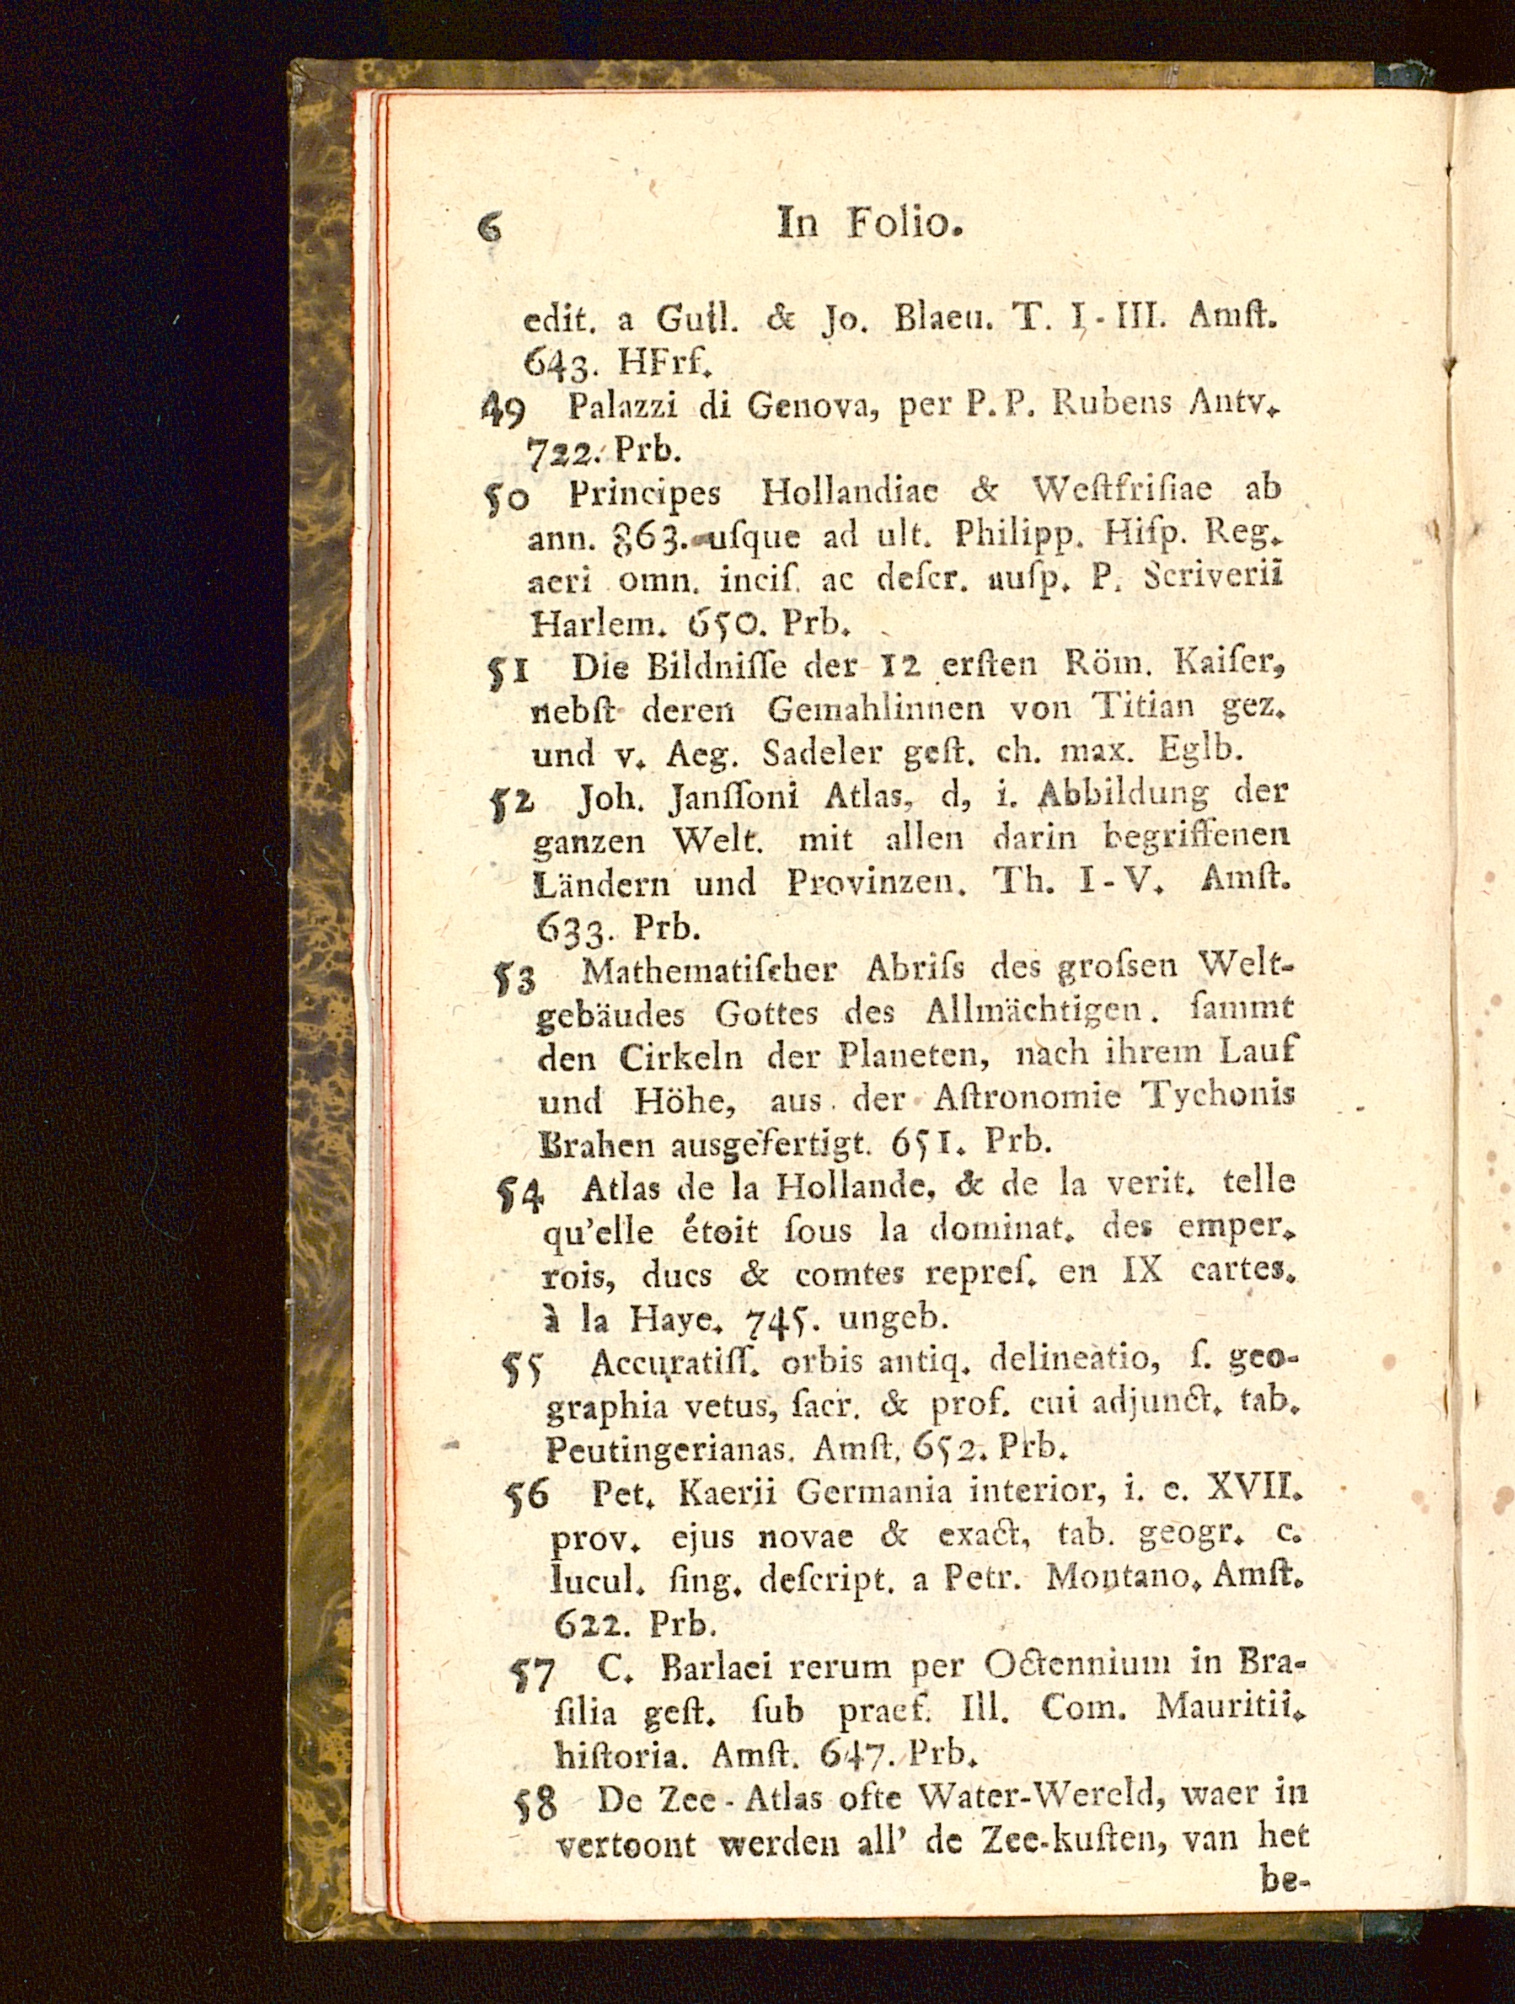 6 In Folio.
edit. a Guil. & Jo. Blaeu. T. I-III. Amſt.
643. HFrſ.
49 Palazzi di Genova, per P. P. Rubens Antv.
722. Prb.
50 Principes Hollandiae & Weſtfriſiae ab
ann. 863. uſque ad ult. Philipp. Hiſp. Reg.
aeri omn. inciſ. ac deſcr. auſp. P. Scriverii
Harlem. 650. Prb.
51 Die Bildniſſe der 12 erſten Röm. Kaiſer,
nebſt deren Gemahlinnen von Titian gez.
und v. Aeg. Sadeler geſt. ch. max. Eglb.
52 Joh. Janſſoni Atlas, d, i. Abbildung der
ganzen Welt. mit allen darin begriffenen
Ländern und Provinzen. Th. I-V. Amſt.
633. Prb.
53 Mathematiſcher Abriſs des groſsen Welt-
gebäudes Gottes des Allmächtigen. ſammt
den Cirkeln der Planeten, nach ihrem Lauf
und Höhe, aus der Aſtronomie Tychonis
Brahen ausgefertigt. 651. Prb.
54 Atlas de la Hollande, & de la verit. telle
qu'elle étoit ſous la dominat. des emper.
rois, ducs & comtes repreſ. en IX cartes.
à la Haye. 745. ungeb.
55 Accuratiſſ. orbis antiq. delineatio, ſ. geo-
graphia vetus, ſacr. & prof. cui adjunct. tab.
Peutingerianas. Amſt. 652. Prb.
56 Pet. Kaerii Germania interior, i. e. XVII.
prov. ejus novae & exact, tab. geogr. c.
lucul. ſing. deſcript. a Petr. Montano. Amſt.
622. Prb.
57 C. Barlaei rerum per Octennium in Bra-
ſilia geſt. ſub praef. Ill. Com. Mauritii.
hiſtoria. Amſt. 647. Prb.
58 De Zee-Atlas ofte Water-Wereld, waer in
vertoont werden all' de Zee-kuſten, van het
be-